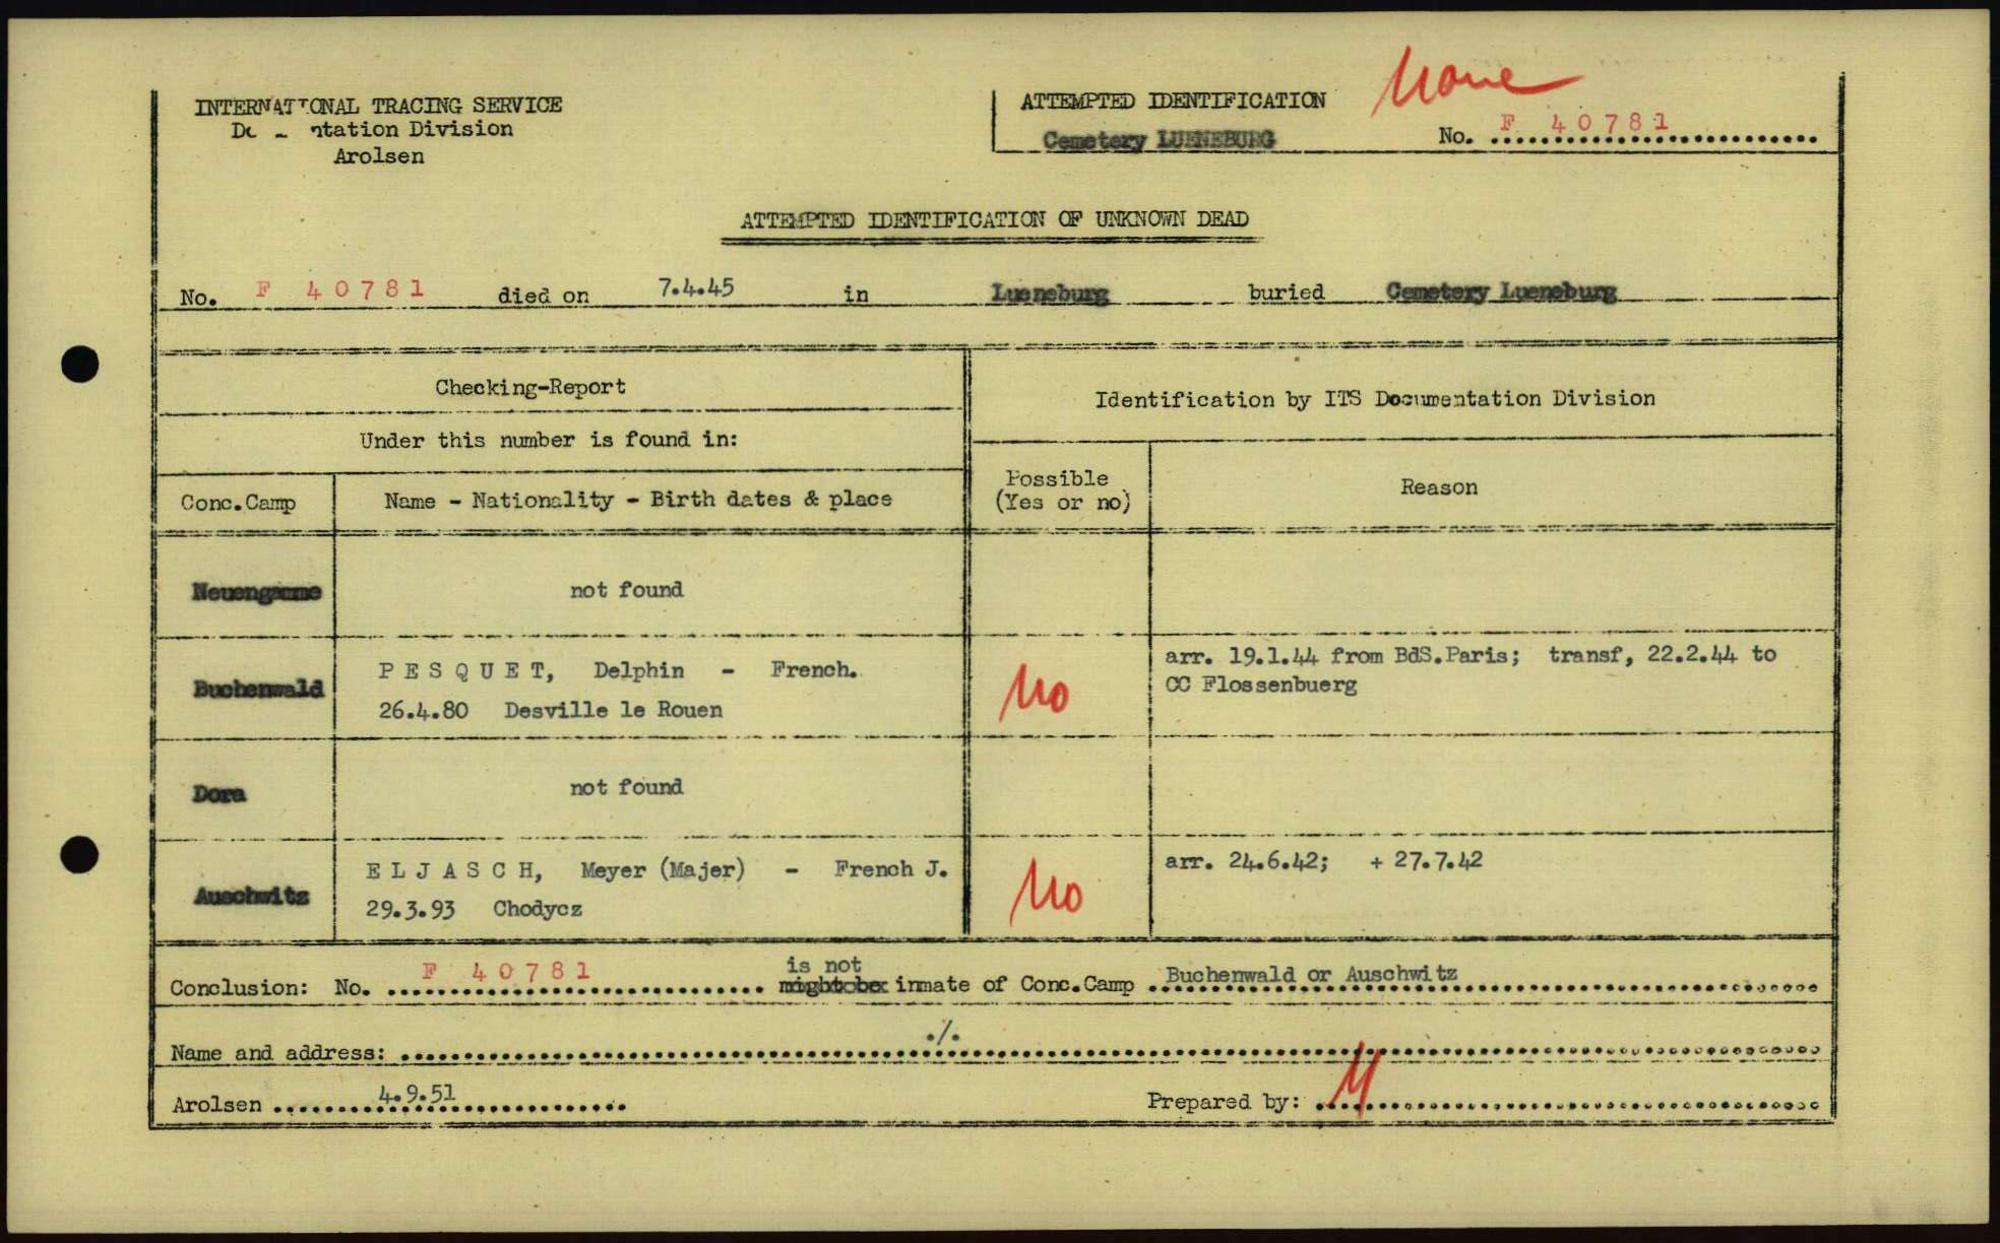 INTERNATIONAL TRACING SERVICE
ntation Division
Arolsen
ATTEMPTED IDENTIFICATION
None
Cemetery LUENEBURG
No. F 40781
ATTEMPTED IDENTIFICATION OF UNKNOWN DEAD
No. F 40781 died on 7.4.45 in Lueneburg buried Cemetery Lueneburg
Checking-Report
Identification by ITS Documentation Division
Under this number is found in:
Conc.Camp Name - Nationality - Birth dates & place
Possible
(Yes or no)
Reason
Neuengamme not found
Buchenwald
PESQUET, Delphin - French.
26.4.80 Desville le Rouen
No
arr. 19.1.44 from BdS.Paris; transf, 22.2.44 to
CC Flossenbuerg
Dora not found
Auschwitz
ELJASCH, Meyer (Majer) - French J.
29.3.93 Chodycz
No
arr. 24.6.42; + 27.7.42
is not
Conclusion: No. F 40781 might be inmate of Conc.Camp Buchenwald or Auschwitz
Name and address: ./.
Arolsen 4.9.51 Prepared by: